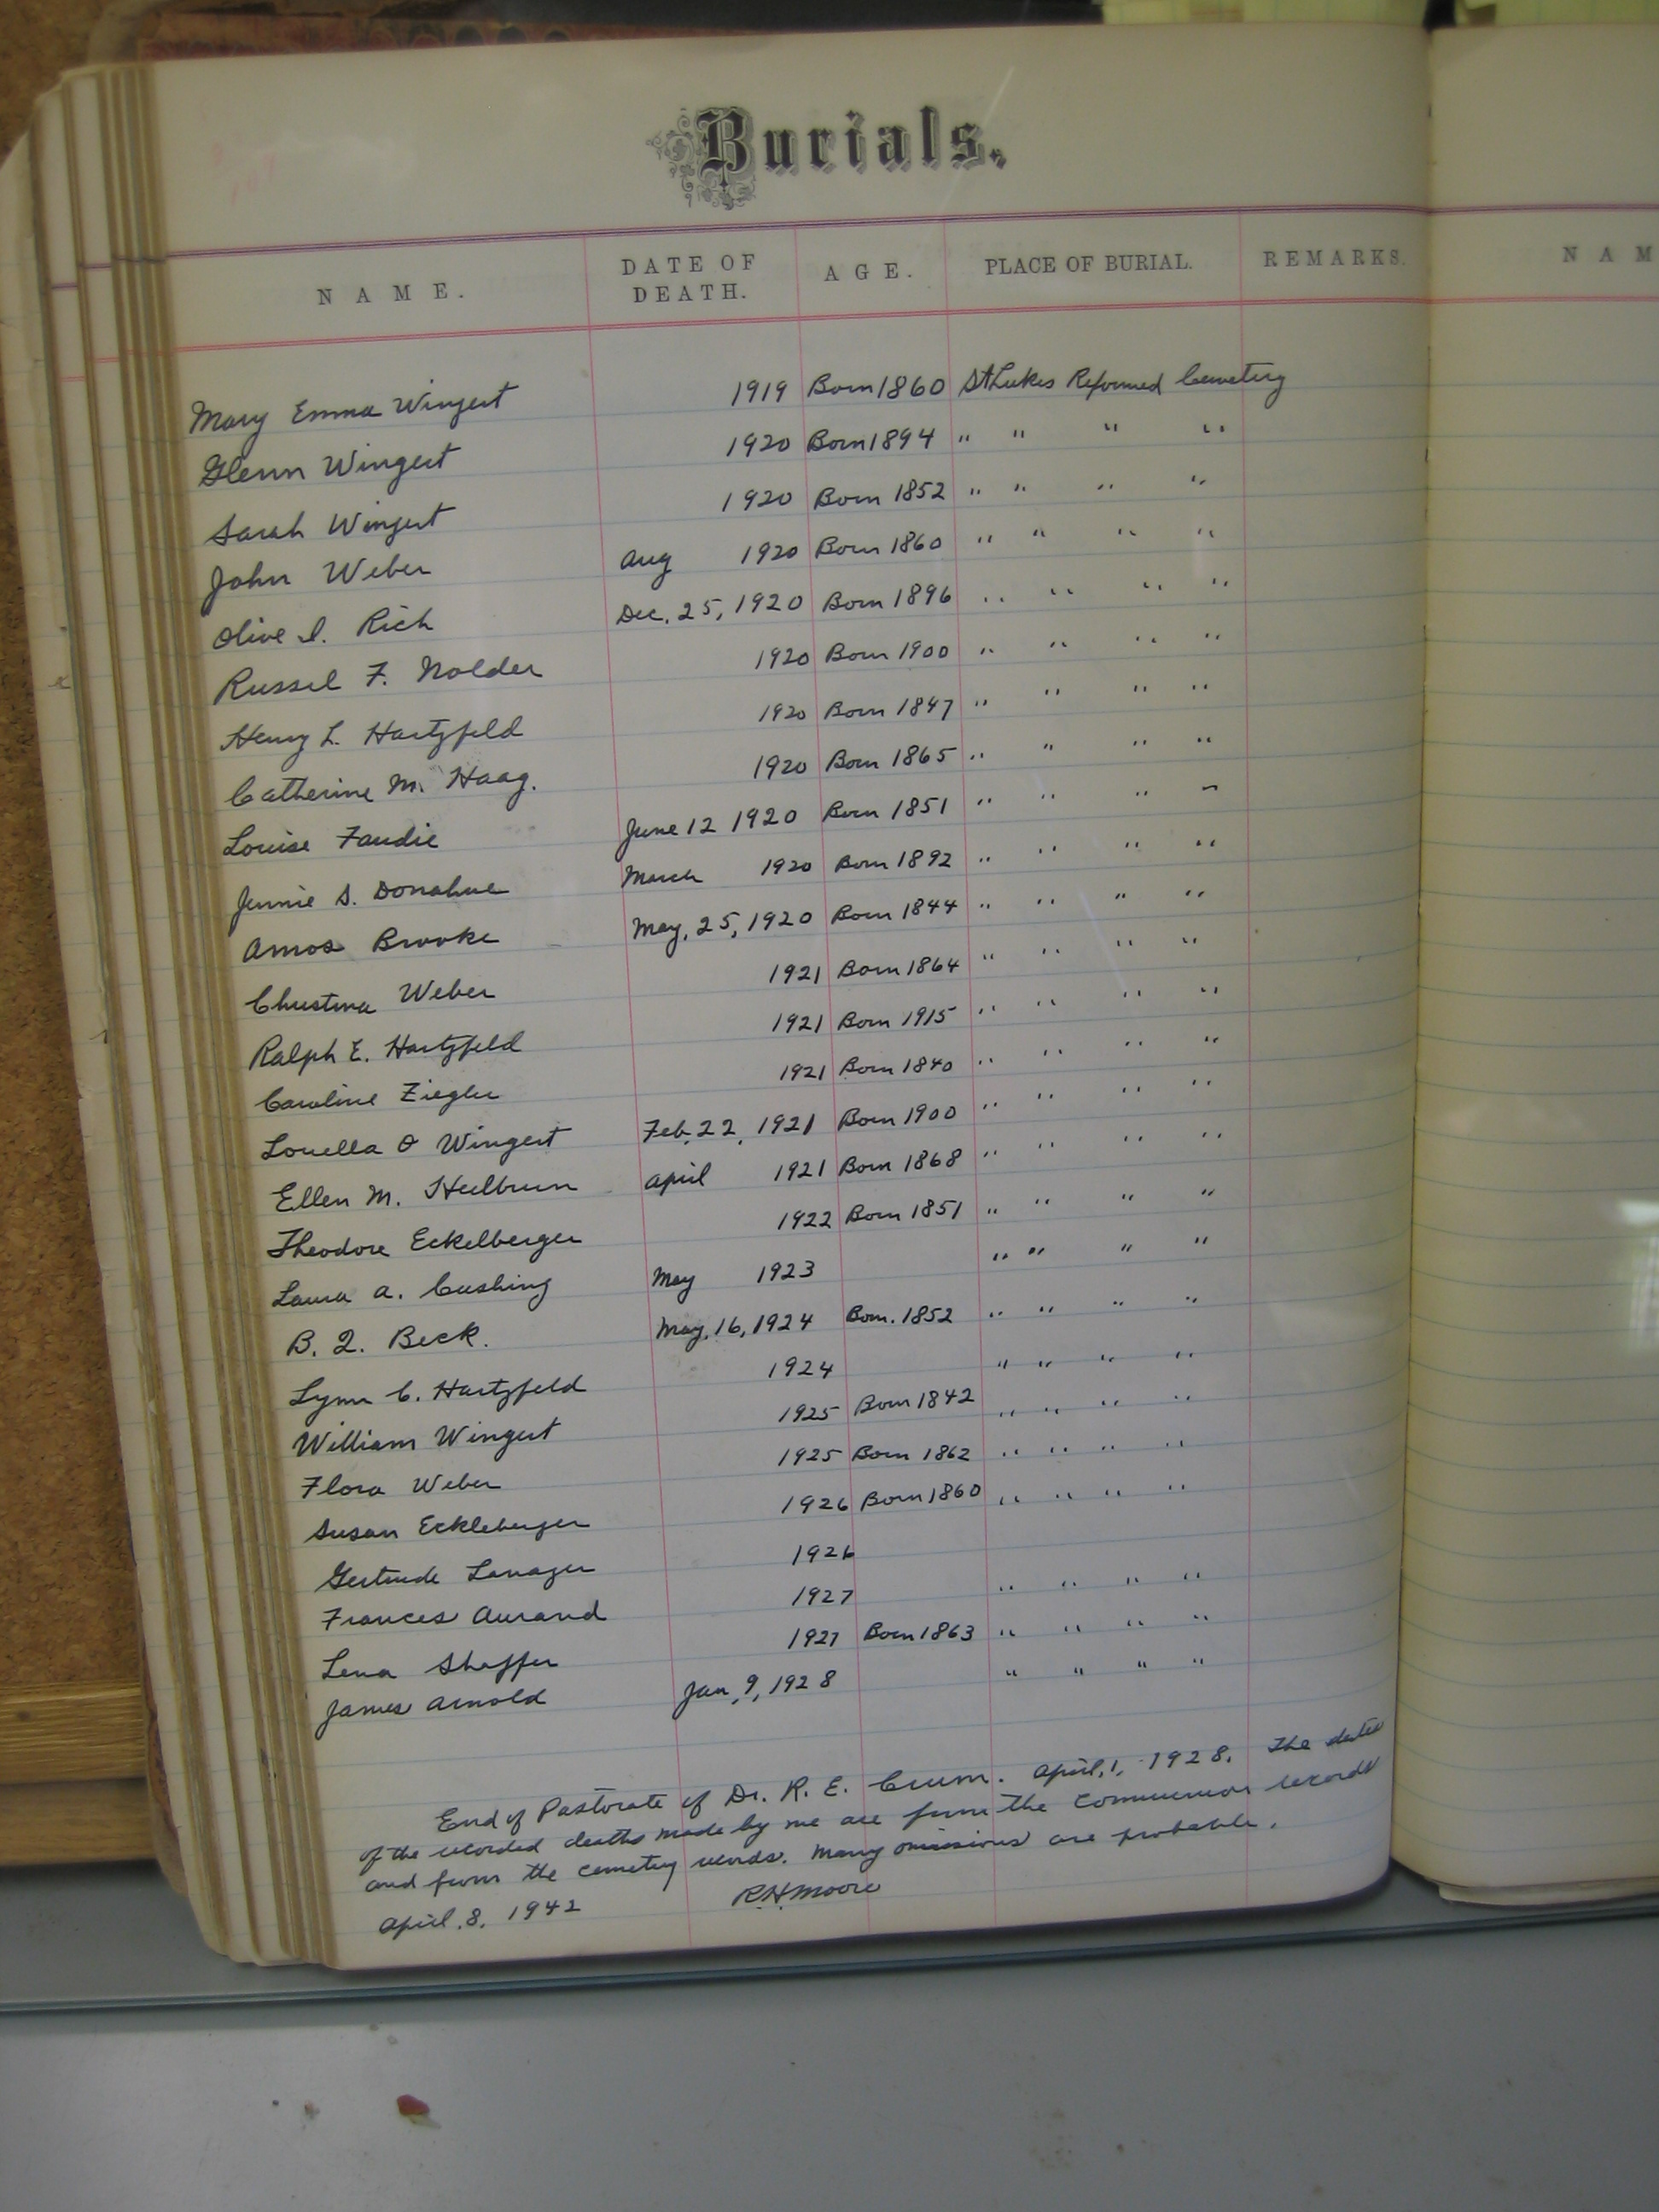 Burials.
NAME. DATE OF DEATH. AGE. PLACE OF BURIAL. REMARKS. NAM
Mary Emma Wingert 1919 Born 1860 St Lukes Reformed Cemetery
Glenn Wingert 1920 Born 1894 " " " "
Sarah Wingert 1920 Born 1852 " " " "
John Weber Aug 1920 Born 1860 " " " "
Olive I. Rich Dec. 25, 1920 Born 1896 " " " "
Russel F. Nolder 1920 Born 1900 " " " "
Henry L. Hartzfeld 1920 Born 1847 " " " "
Catherine M. Haag. 1920 Born 1865 " " " "
Louise Faudie June 12 1920 Born 1851 " " " "
Jennie S. Donahue March 1920 Born 1892 " " " "
Amos Brooke May, 25, 1920 Born 1844 " " " "
Christina Weber 1921 Born 1864 " " " "
Ralph E. Hartzfeld 1921 Born 1915 " " " "
Caroline Ziegler 1921 Born 1840 " " " "
Louella O Wingert Feb. 22, 1921 Born 1900 " " " "
Ellen M. Heilbrun April 1921 Born 1868 " " " "
Theodore Eckelberger 1922 Born 1851 " " " "
Laura A. Cushing May 1923 " " " "
B. Q. Beck. May, 16, 1924 Born. 1852 " " " "
Lynn C. Hartzfeld 1924 " " " "
William Wingert 1925 Born 1842 " " " "
Flora Weber 1925 Born 1862 " " " "
Susan Eckleberger 1926 Born 1860 " " " "
Gertrude Lanager 1926
Frances Aurand 1927 " " " "
Lena Shaffer 1927 Born 1863 " " " "
James Arnold Jan, 9, 1928 " " " "
End of Pastorate of Dr. R. E. Crum. April, 1, 1928. The dates
of the recorded deaths made by me are from the Communion records
and from the cemetery records. Many omissions are probable.
April. 8. 1942 R.H. Moore